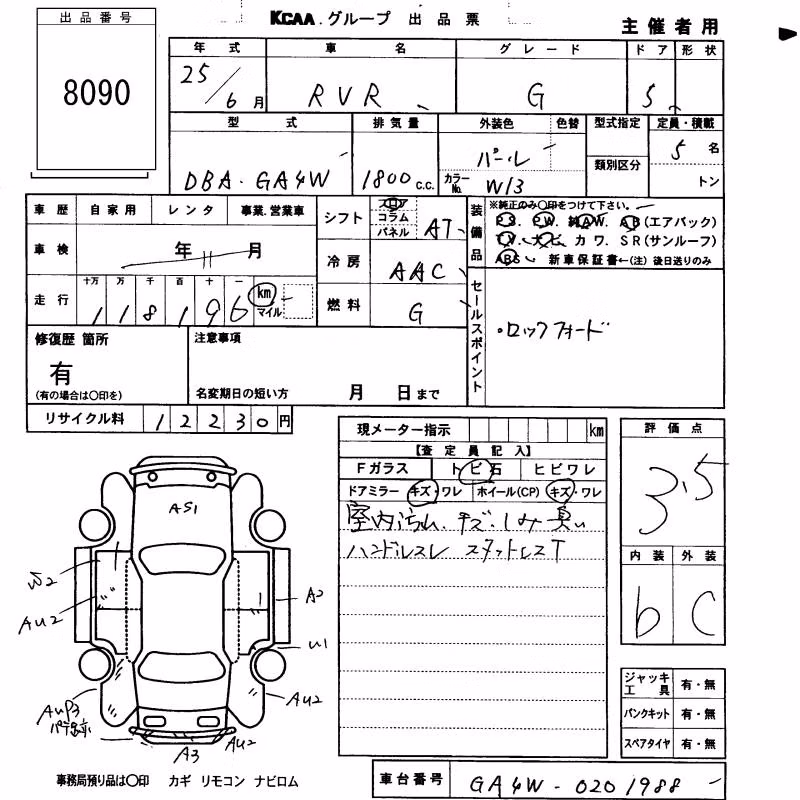 出品番号
8090
KCAA.グループ 出品票
主催者用
年式 車名 グレード ドア 形状
25/6月 RVR G 5
型式 排気量 外装色 色替 型式指定 定員・積載
DBA-GA4W 1800 c.c. パール 類別区分 5名
カラーNo. W13 トン
車歴 自家用 レンタ 事業.営業車
シフト フロア コラム パネル AT
装備品 ※純正のみ○印をつけて下さい。
PS. PW. 純AW. AB(エアバック)
TV. ナビ カワ. SR(サンルーフ)
ABS 新車保証書←(注) 後日送りのみ
車検 年 11月
冷房 AAC
走行 十万 万 千 百 十 一
118196 km マイル
燃料 G
セールスポイント
・ロックフォード
修復歴 箇所
有
(有の場合は○印を)
注意事項
名変期日の短い方 月 日まで
リサイクル料 12230円
現メーター指示 km
【査定員記入】
Fガラス トビ石 ヒビワレ
ドアミラー キズ・ワレ ホイール(CP) キズ・ワレ
室内汚れ.キズ.しみ 臭い
ハンドルスレ スタットレスT
評価点
3.5
内装 外装
b C
AS1
W2
AU2
A2
U1
AU2
AUP3
パテ跡
AU2
A3
ジャッキ工具 有・無
パンクキット 有・無
スペアタイヤ 有・無
事務局預り品は○印 カギ リモコン ナビロム
車台番号 GA4W-0201988